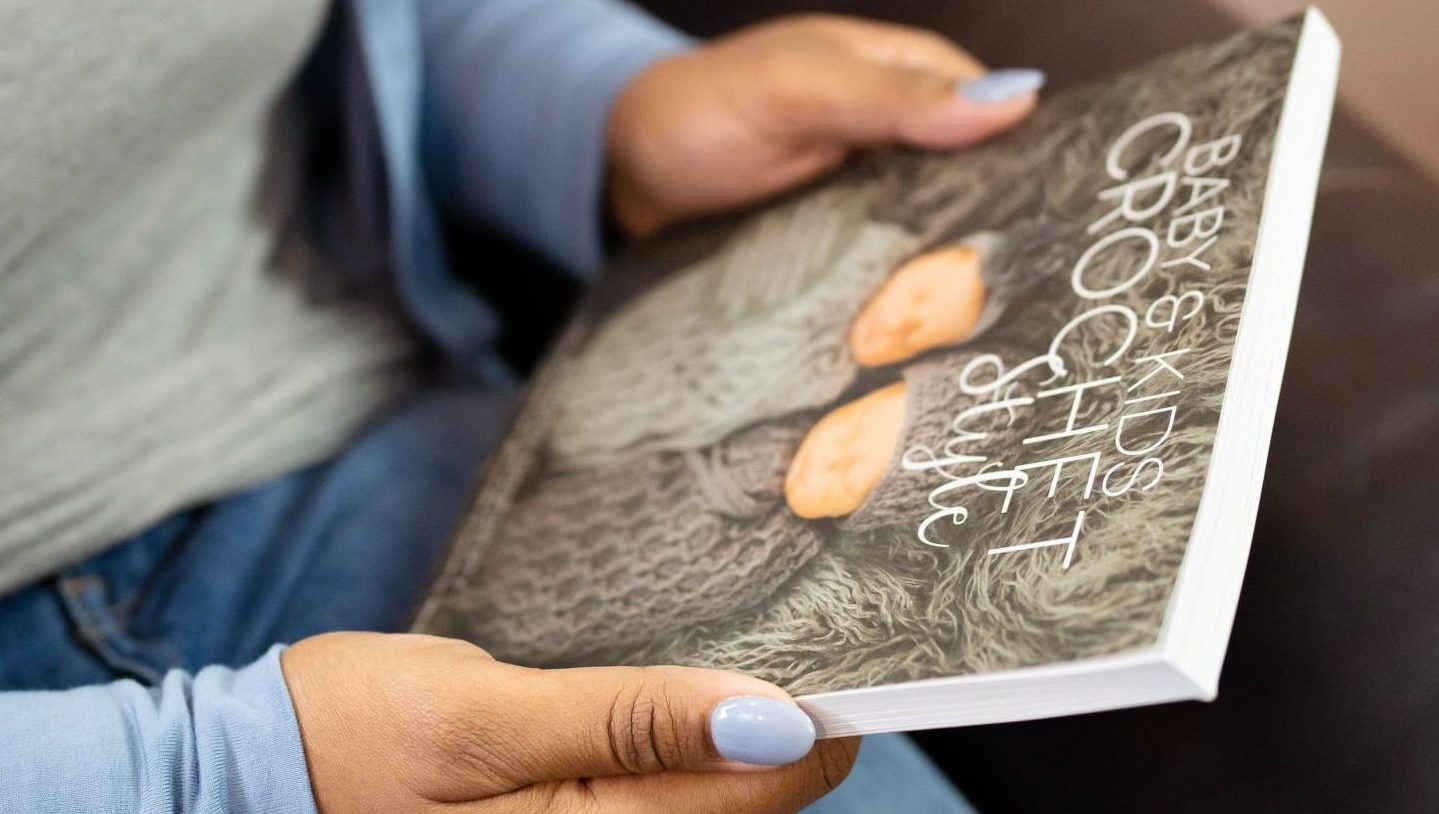 BABY & KIDS
CROCHET
Style